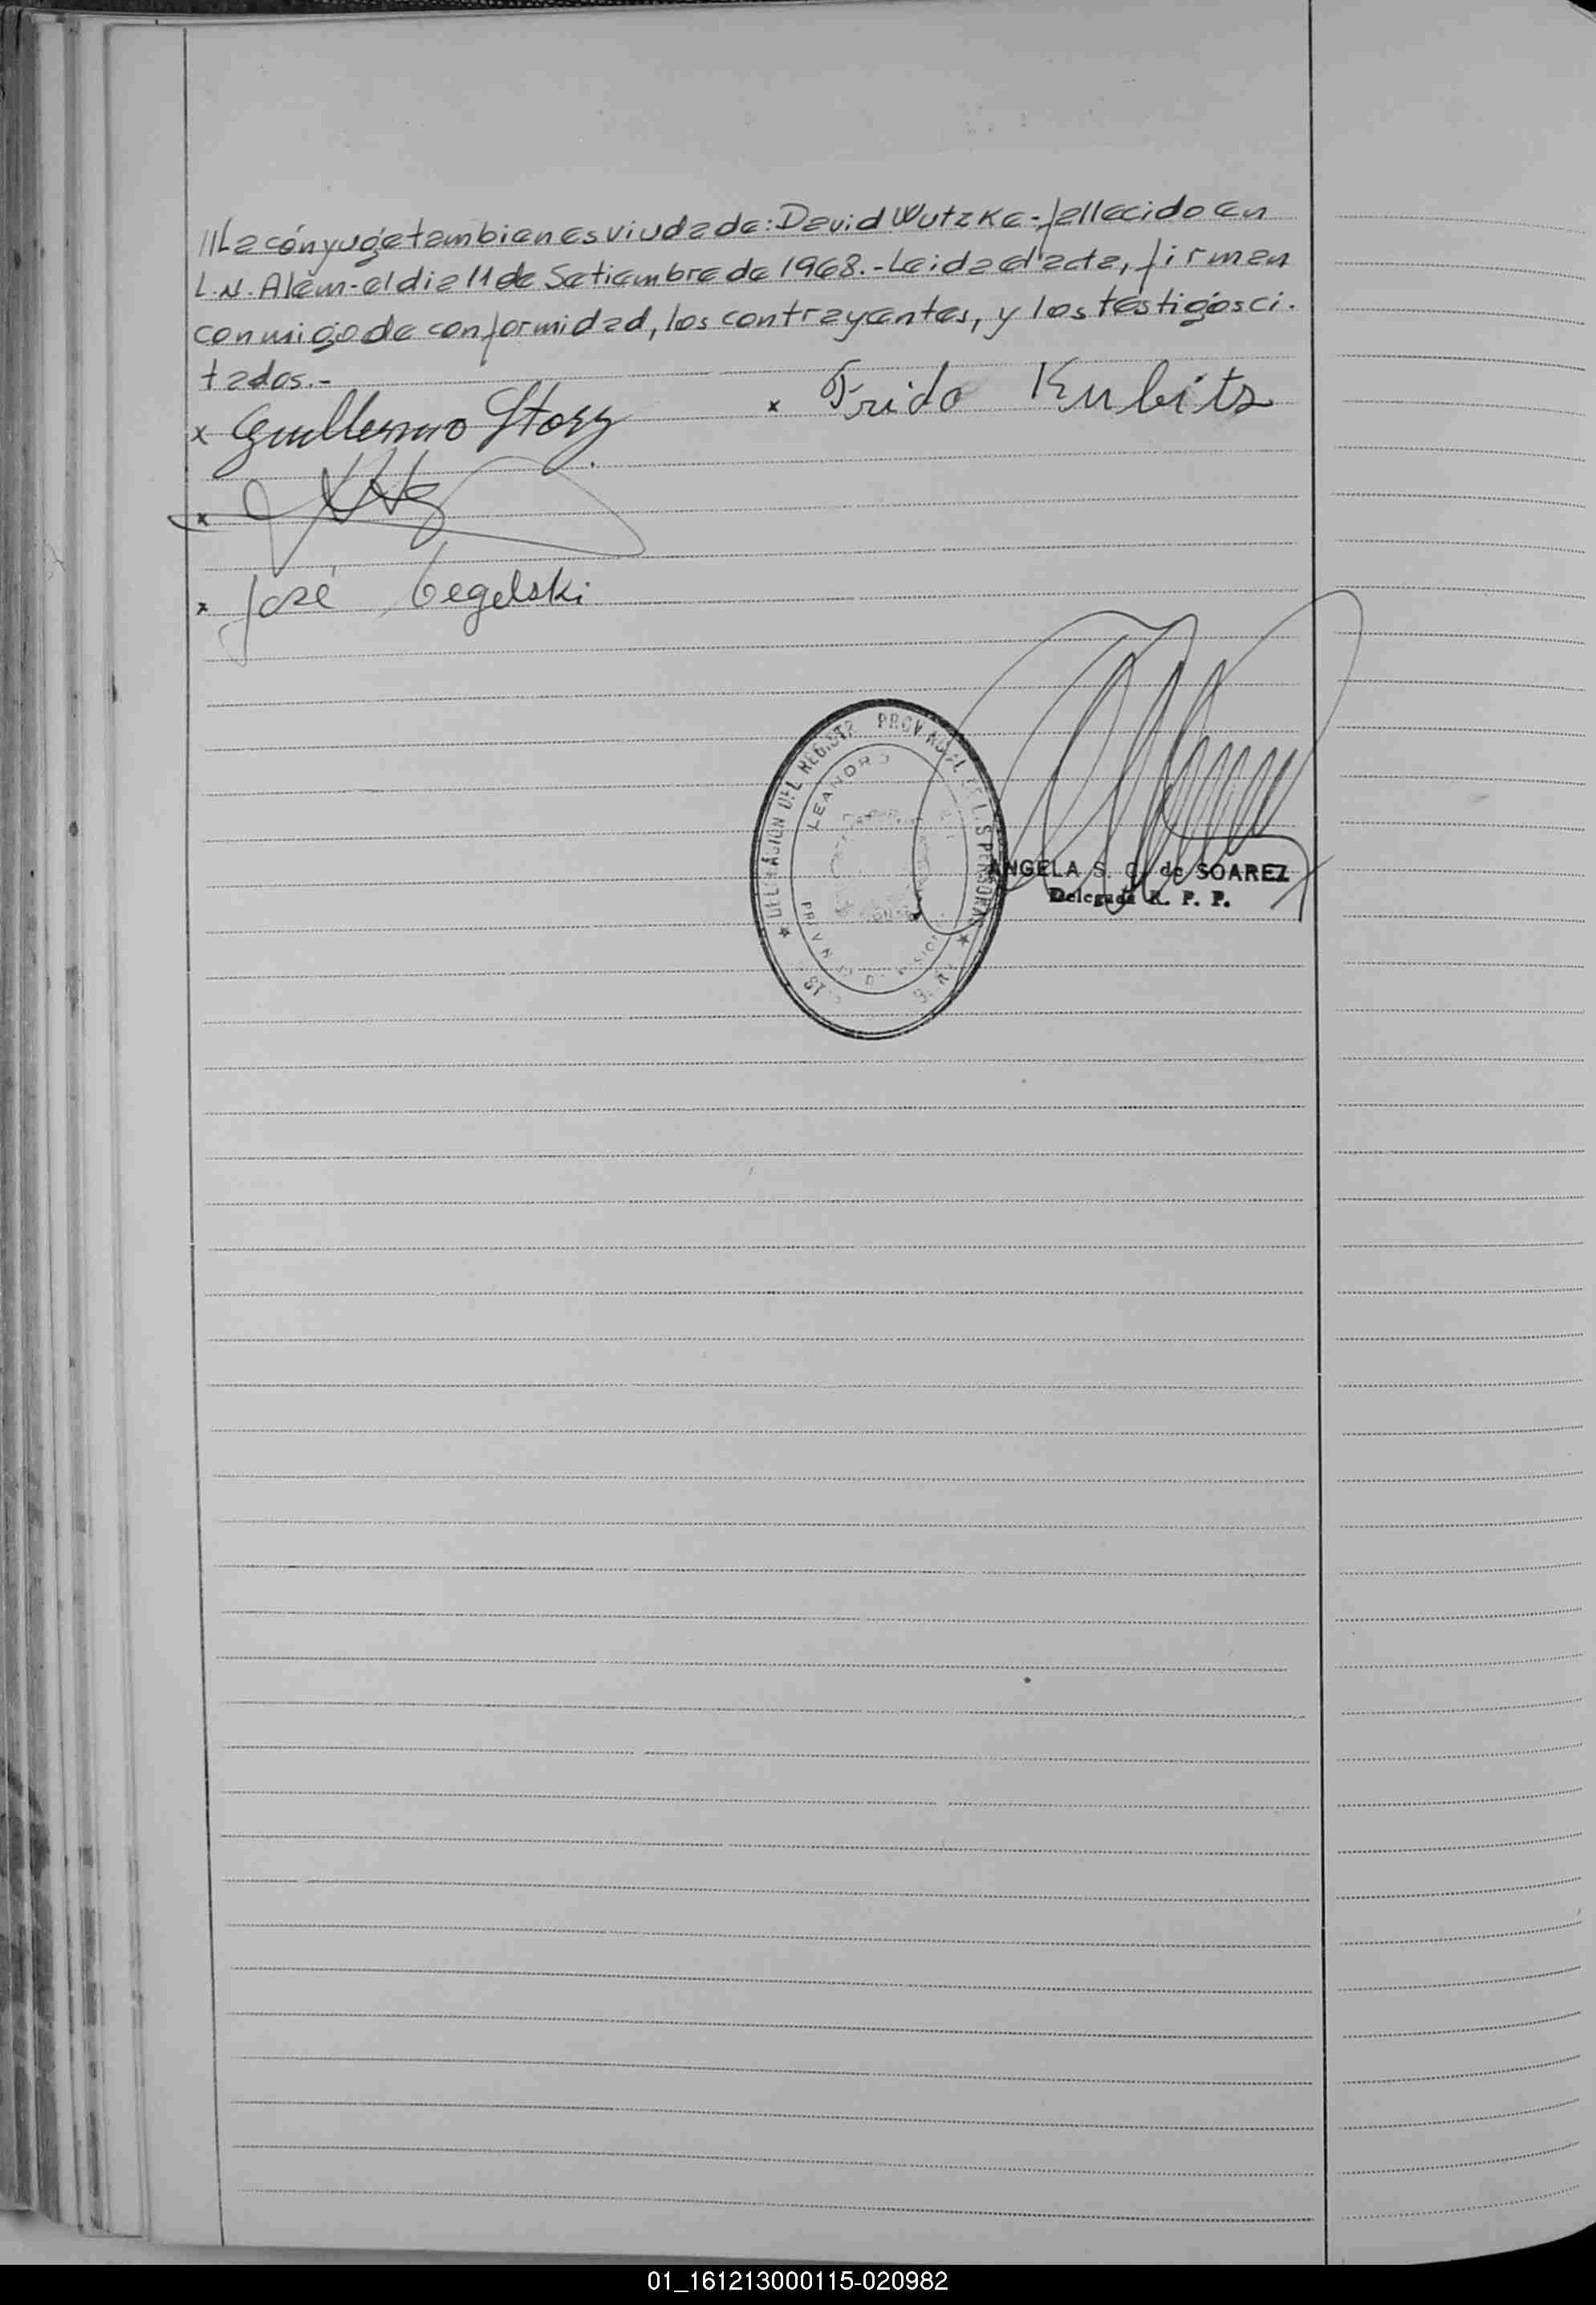 ///La cónyuge tambien es viuda de: David Wutzke-fallecido en
L.N. Alem-el dia 11 de Setiembre de 1968.-Leida el acta, firman
conmigo de conformidad, los contrayentes, y los testigos ci-
tados.-
x Guillermo Storz x Frida Kubitz
x
x José Cegelski
PROVINCIAL PERSONAS
LEANDRO
ANGELA S. C. de SOAREZ
Delegada R. P. P.
01_161213000115-020982